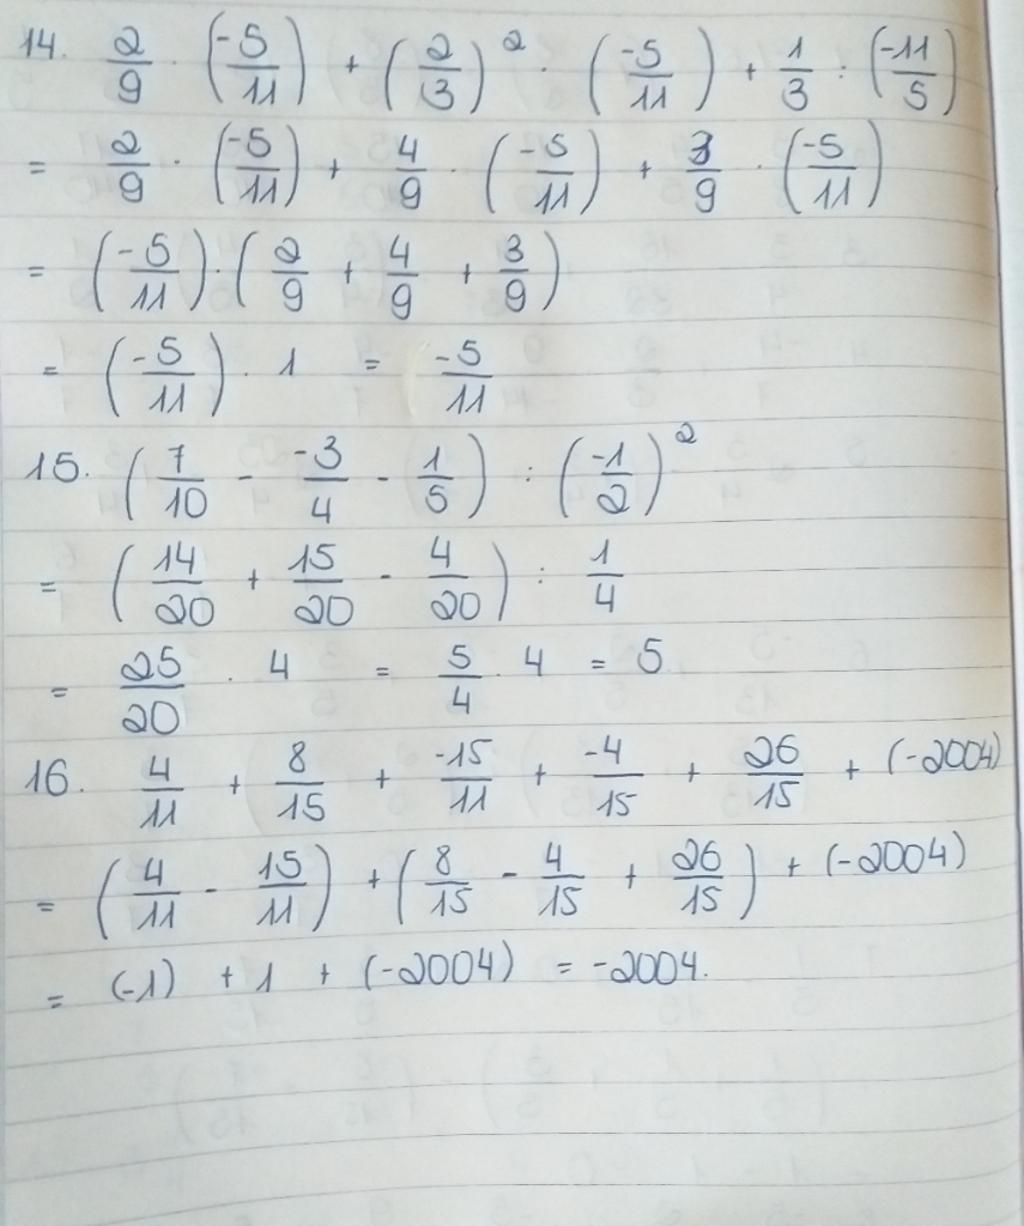 14. 2/9 · (-5/11) + (2/3)² · (-5/11) + 1/3 : (-11/5)
= 2/9 · (-5/11) + 4/9 · (-5/11) + 3/9 · (-5/11)
= (-5/11) · (2/9 + 4/9 + 3/9)
= (-5/11) · 1 = -5/11
15. (7/10 - -3/4 - 1/5) : (-1/2)²
= (14/20 + 15/20 - 4/20) : 1/4
= 25/20 · 4 = 5/4 · 4 = 5
16. 4/11 + 8/15 + -15/11 + -4/15 + 26/15 + (-2004)
= (4/11 - 15/11) + (8/15 - 4/15 + 26/15) + (-2004)
= (-1) + 1 + (-2004) = -2004.